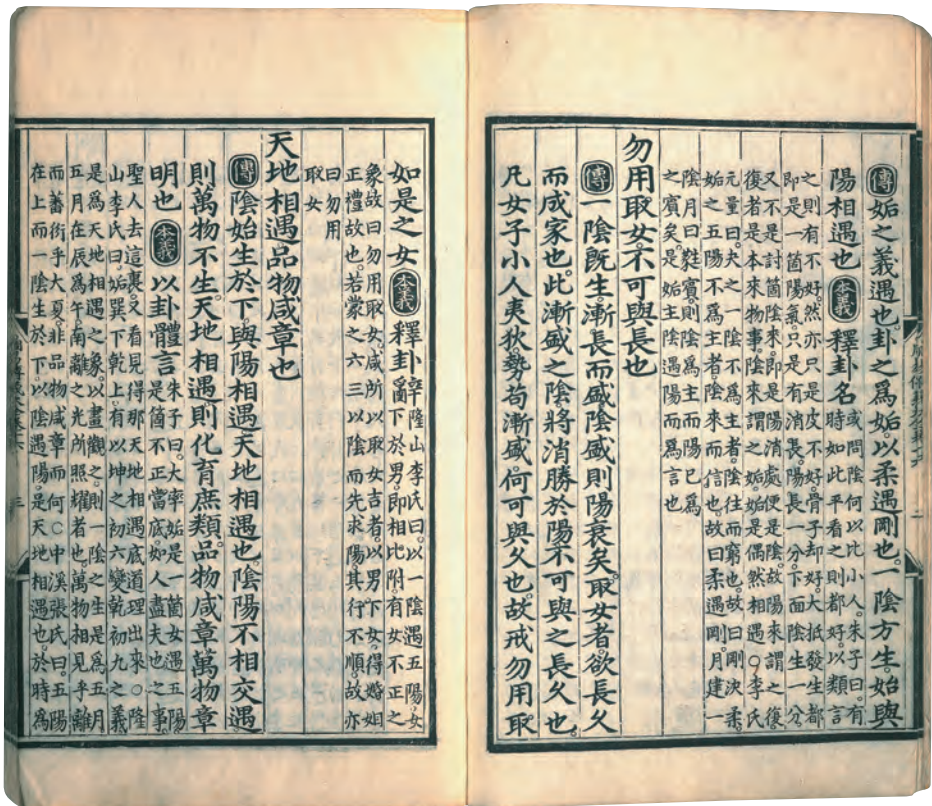 傳姤之義遇也卦之爲姤以柔遇剛也一陰方生始與
陽相遇也本義釋卦名
或問陰何以比小人朱子曰有
時如此平看之則都好以類言
之則有不好然亦只是皮不好骨子却好大抵發生都
即是一箇陽氣只是有消長陽長一分下面陰生一分
又不是討箇陰來即是陽消處便是陰故陽來謂之復
復者是本來物事陰來謂之姤姤是偶然相遇○李氏
元量曰夬之一陰不爲主者陰往而窮也故曰剛決柔
姤之五陽不爲主者陰來而信也故曰柔遇剛月建一
陰月曰蕤賓則陰爲主而陽已爲
之賓矣是姤主陰遇陽而爲言也
勿用取女不可與長也
傳一陰既生漸長而盛陰盛則陽衰矣取女者欲長久
而成家也此漸盛之陰將消勝於陽不可與之長久也
凡女子小人夷狄勢苟漸盛何可與久也故戒勿用取
二
如是之女本義釋卦辭
隆山李氏曰以一陰遇五陽女
下於男即相比附有女不正之
象故曰勿用取女咸所以取女吉者以男下女得婚姻
正禮故也若蒙之六三以陰而先求陽其行不順故亦
曰勿用
取女
天地相遇品物咸章也
傳陰始生於下與陽相遇天地相遇也陰陽不相交遇
則萬物不生天地相遇則化育庶類品物咸章萬物章
明也本義以卦體言
朱子曰大率姤是一箇女遇五陽
是箇不正當底如人盡夫也之事
聖人去這裏又看見得那天地相遇底道理出來○隆
山李氏曰姤巽下乾上有以坤之初六變乾初九之義
是爲天地相遇之象以畫觀之則一陰之生是爲五月
五月在辰爲午南離之光所照耀者也萬物相見乎離
而蕃衍乎大夏非品物咸章而何○中溪張氏曰五陽
在上而一陰生於下以陰遇陽是天地相遇也於時爲
三